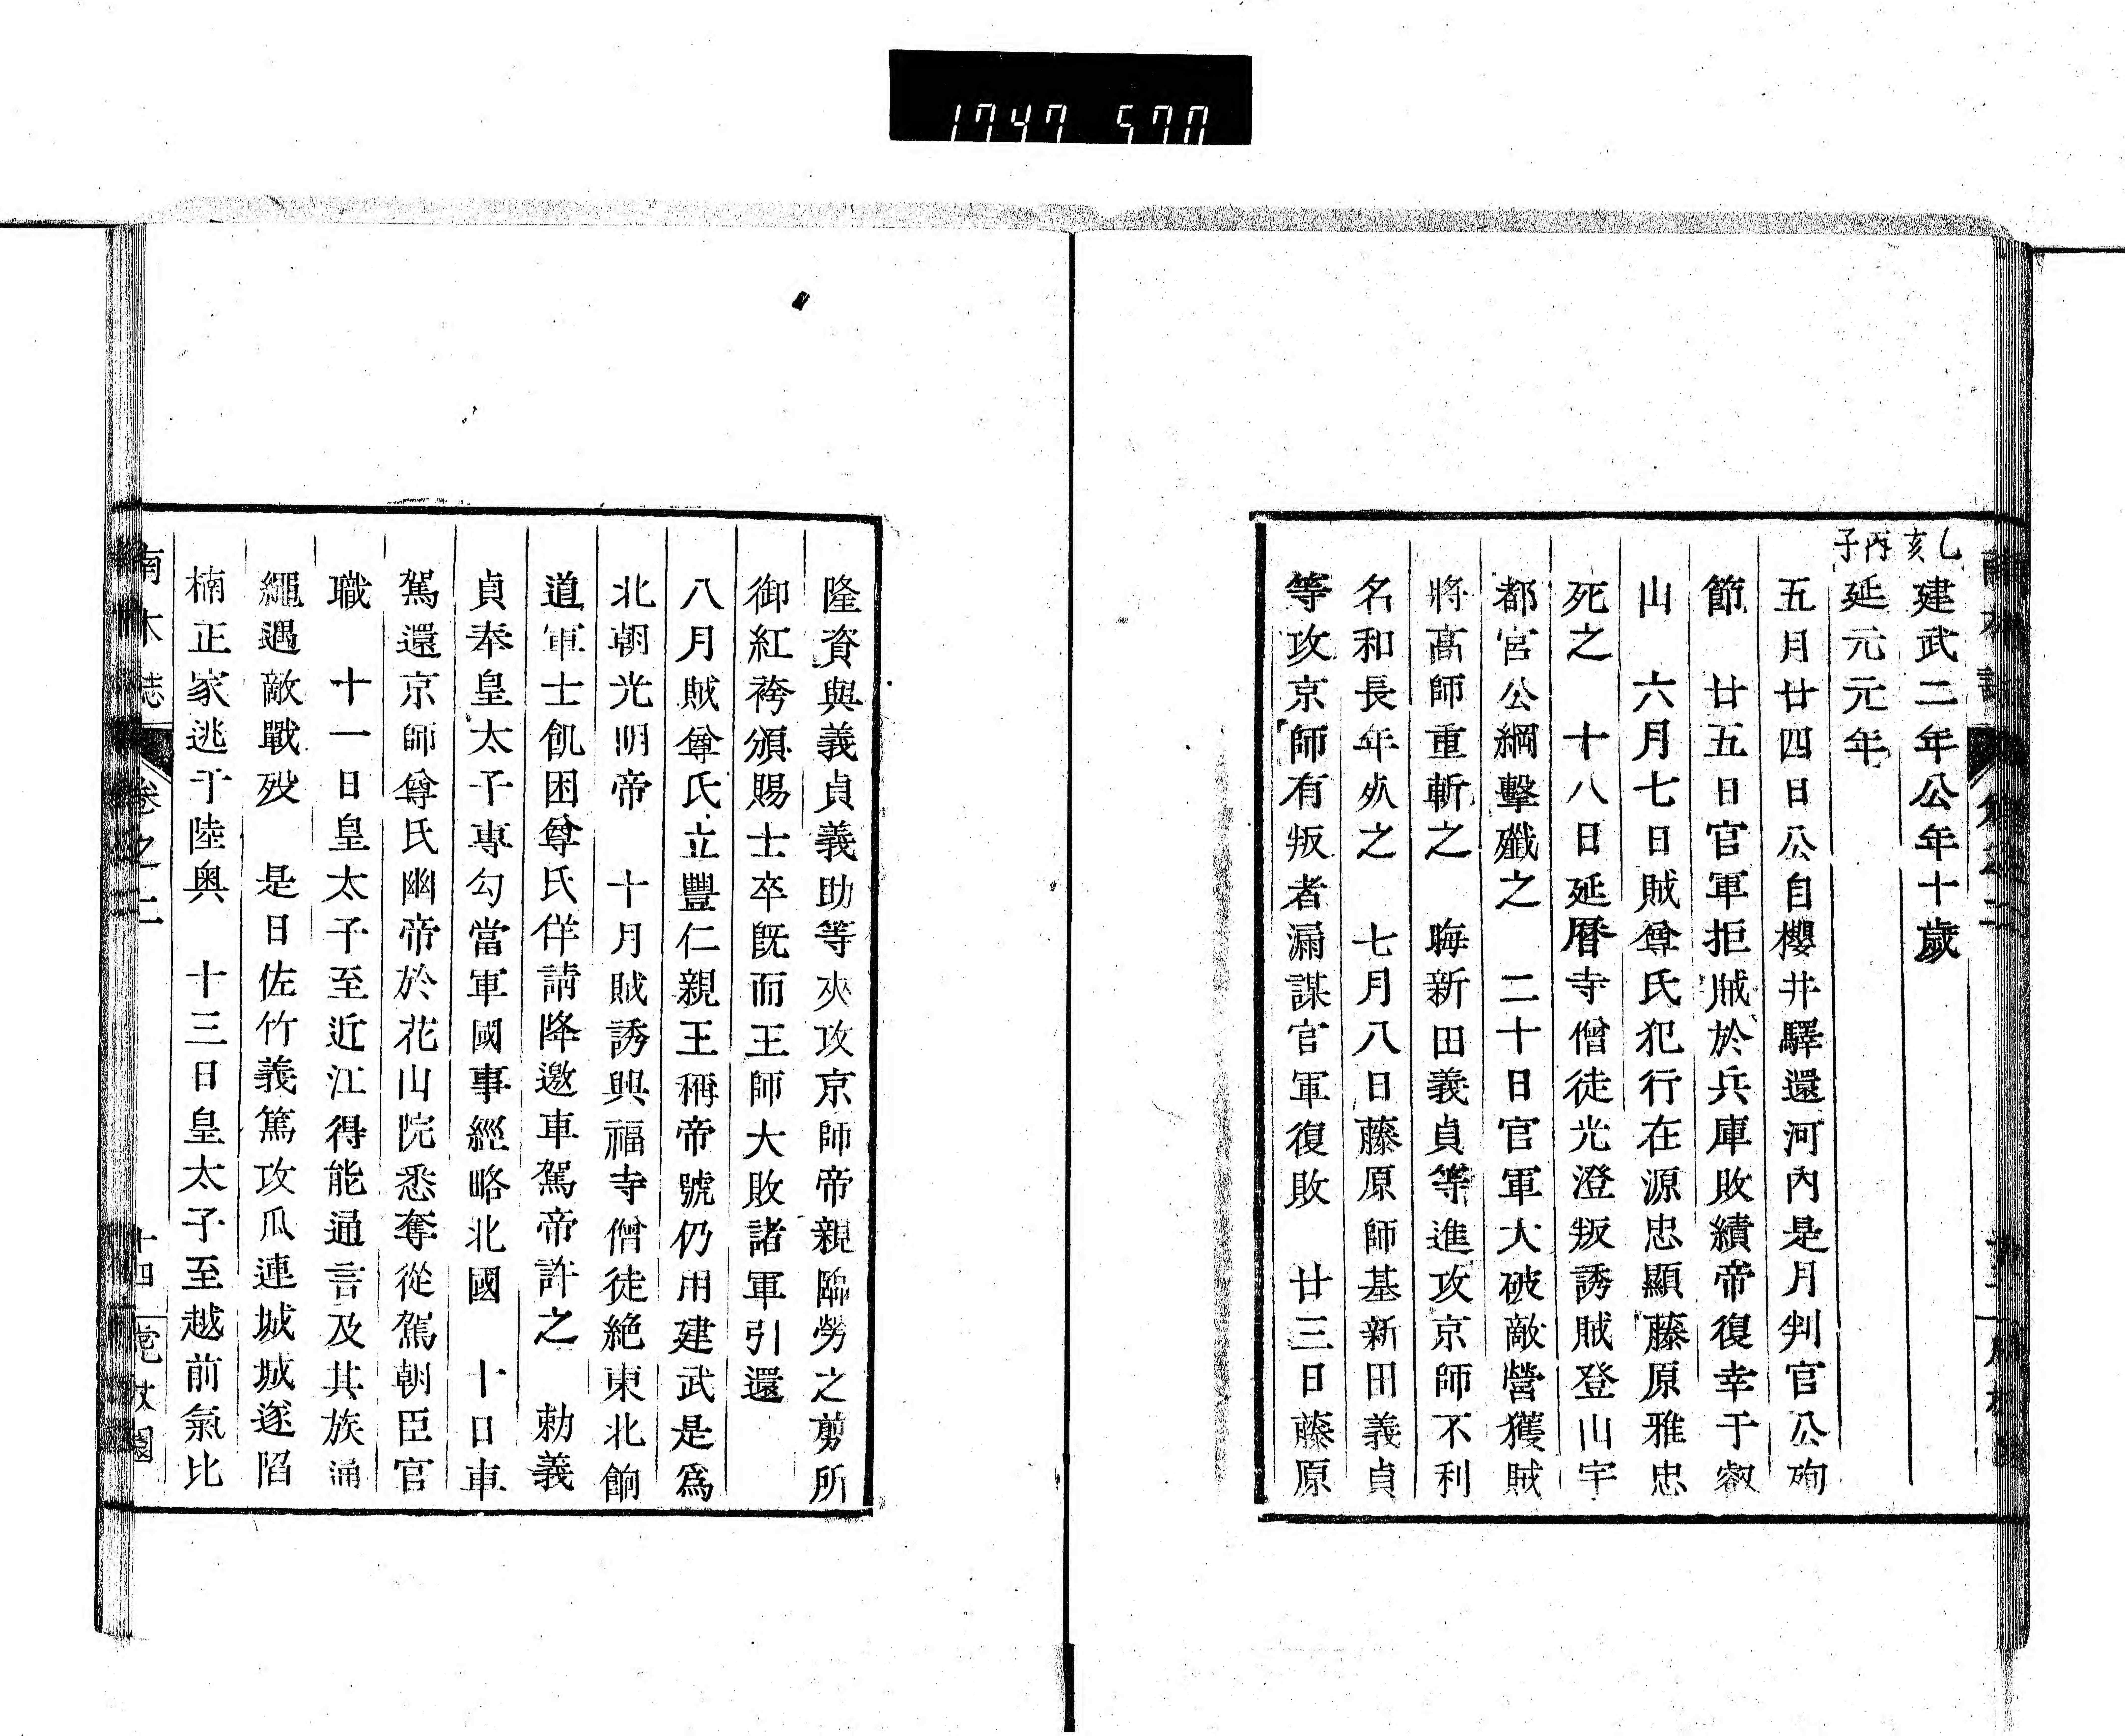 1747 570
乙亥 建武二年公年十歲
丙子 延元元年
五月廿四日公自櫻井驛還河內是月判官公殉
節　廿五日官軍拒賊於兵庫敗績帝復幸于叡
山　六月七日賊尊氏犯行在源忠顯藤原雅忠
死之　十八日延曆寺僧徒光澄叛誘賊登山宇
都宮公綱擊殲之　二十日官軍大破敵營獲賊
將高師重斬之　晦新田義貞等進攻京師不利
名和長年死之　七月八日藤原師基新田義貞
等攻京師有叛者漏謀官軍復敗　廿三日藤原
隆資與義貞義助等夾攻京師帝親臨勞之剪所
御紅袴頒賜士卒既而王師大敗諸軍引還
八月賊尊氏立豐仁親王稱帝號仍用建武是爲
北朝光明帝　十月賊誘興福寺僧徒絶東北餉
道軍士飢困尊氏佯請降邀車駕帝許之　勅義
貞奉皇太子專勾當軍國事經略北國　十日車
駕還京師尊氏幽帝於花山院悉奪從駕朝臣官
職　十一日皇太子至近江得能通言及其族通
繩遇敵戰歿　是日佐竹義篤攻瓜連城城遂陷
楠正家逃于陸奥　十三日皇太子至越前氣比
南木誌　卷之二　十四